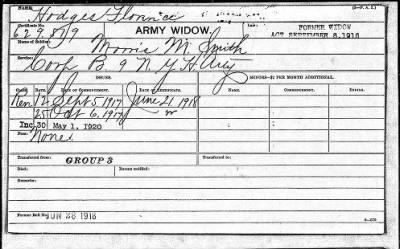 Hodges Florence
Certificate No. 629879 ARMY WIDOW. FORMER WIDOW
ACT SEPTEMBER 8, 1916
Name of Soldier: Morris M. Smith
Service: Corp Ba 9 N.Y.H. Arty
ISSUES. MINORS—$2 PER MONTH ADDITIONAL.
CLASS. RATE. DATE OF COMMENCEMENT. DATE OF CERTIFICATE. NAME. DATE OF COMMENCEMENT.
Ren 12 Sept 5 1917 June 21 1918
25 Oct 6, 1917 "
Inc. 30 May 1, 1920
From: None
Transferred from: GROUP 3 Transferred to:
Died:
Remarks:
Former Roll No. JUN 28 1918